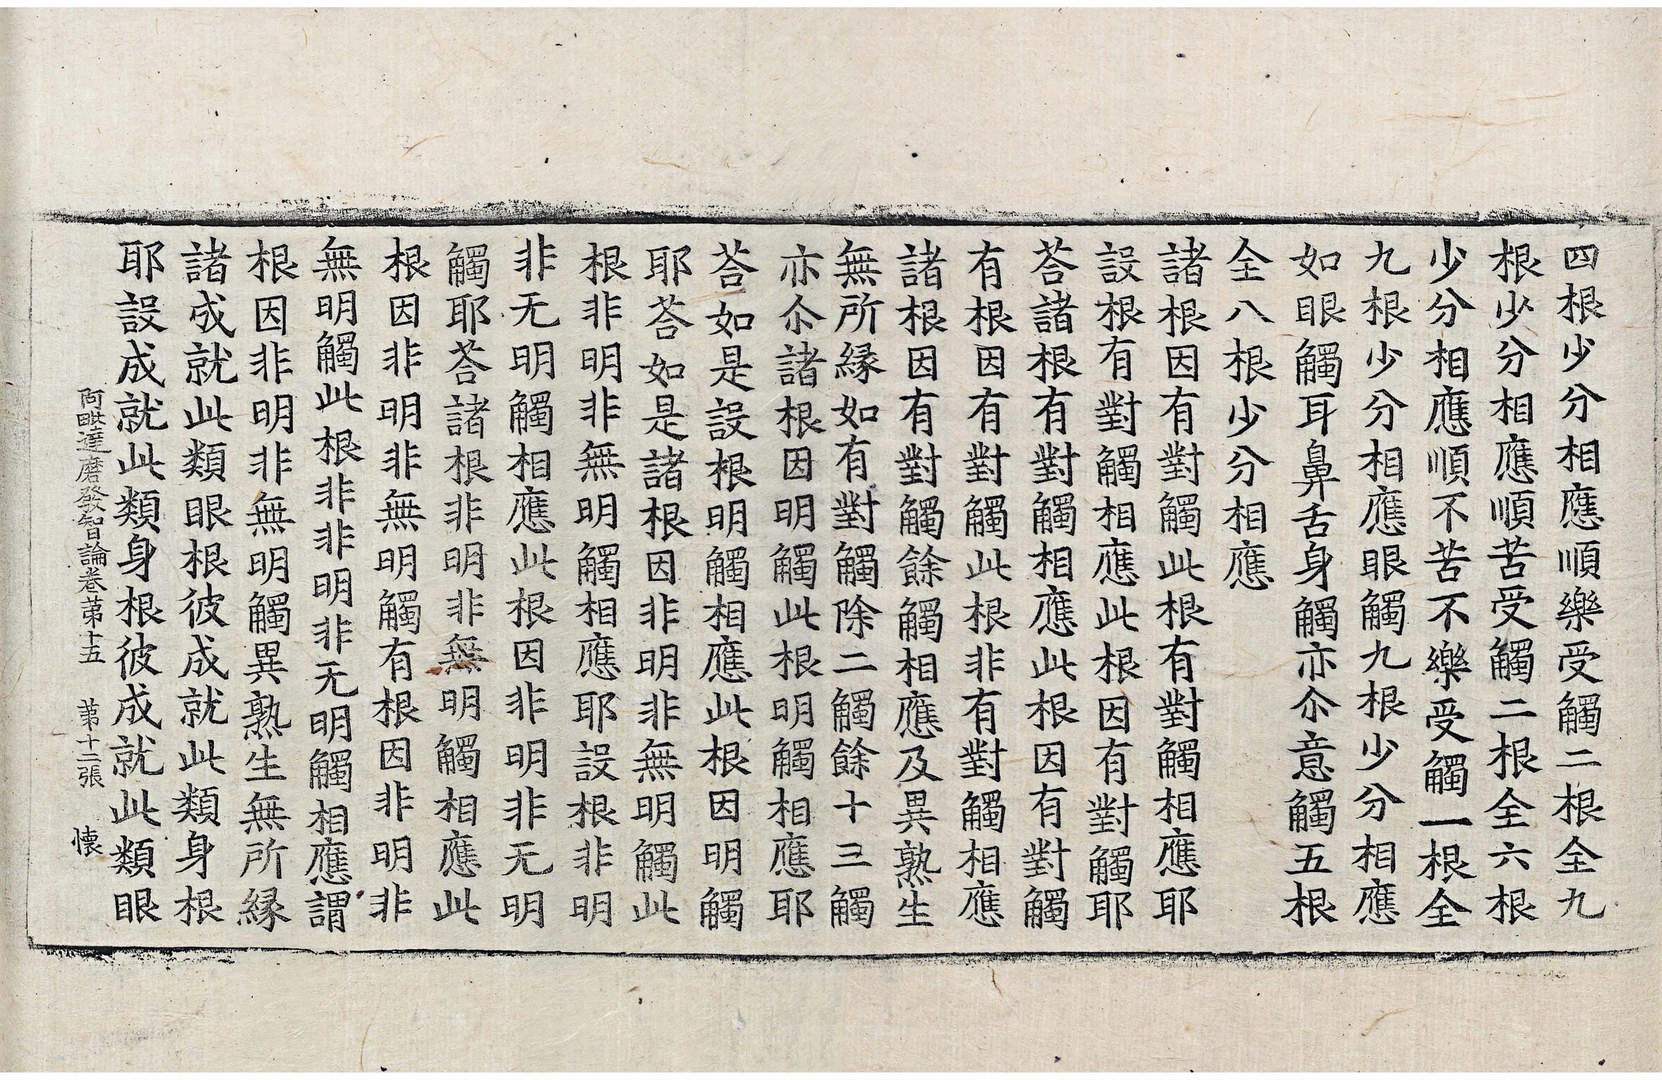 四根少分相應順樂受觸二根全九
根少分相應順苦受觸二根全六根
少分相應順不苦不樂受觸一根全
九根少分相應眼觸九根少分相應
如眼觸耳鼻舌身觸亦尒意觸五根
全八根少分相應
諸根因有對觸此根有對觸相應耶
設根有對觸相應此根因有對觸耶
荅諸根有對觸相應此根因有對觸
有根因有對觸此根非有對觸相應
諸根因有對觸餘觸相應及異熟生
無所縁如有對觸除二觸餘十三觸
亦尒諸根因明觸此根明觸相應耶
荅如是設根明觸相應此根因明觸
耶荅如是諸根因非明非無明觸此
根非明非無明觸相應耶設根非明
非无明觸相應此根因非明非无明
觸耶荅諸根非明非無明觸相應此
根因非明非無明觸有根因非明非
無明觸此根非非明非无明觸相應謂
根因非明非無明觸異熟生無所縁
諸成就此類眼根彼成就此類身根
耶設成就此類身根彼成就此類眼
阿毗達磨發智論卷第十五 第十二張 懷